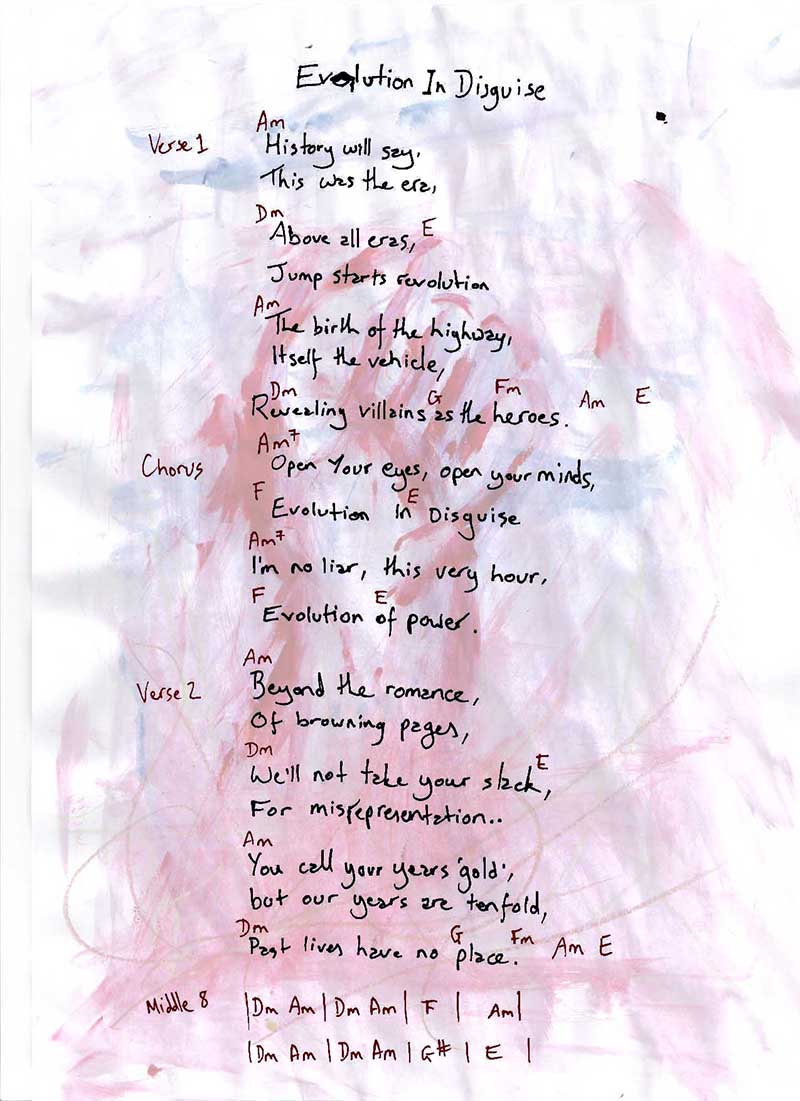 Evolution In Disguise
Am
Verse 1 History will say,
This was the era,
Dm E
Above all eras,
Jump starts revolution
Am
The birth of the highway,
Itself the vehicle,
Dm G Fm Am E
Revealing villains as the heroes.
Am7
Chorus Open Your eyes, open your minds,
F E
Evolution In Disguise
Am7
I'm no liar, this very hour,
F E
Evolution of power.
Am
Verse 2 Beyond the romance,
Of browning pages,
Dm E
We'll not take your slack,
For misrepresentation..
Am
You call your years 'gold',
but our years are tenfold,
Dm G Fm Am E
Past lives have no place.
Middle 8 |Dm Am|Dm Am| F | Am|
|Dm Am|Dm Am|G#| E |